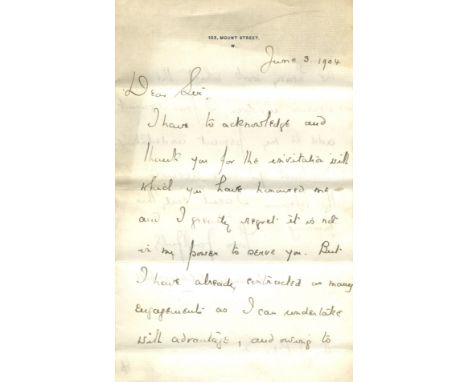 105, MOUNT STREET,
W.
June 3. 1904
Dear Sir,
I have to acknowledge and
thank you for the invitation with
which you have honoured me
and I greatly regret it is not
in my power to serve you. But
I have already contracted as many
engagements as I can undertake
with advantage, and owing to